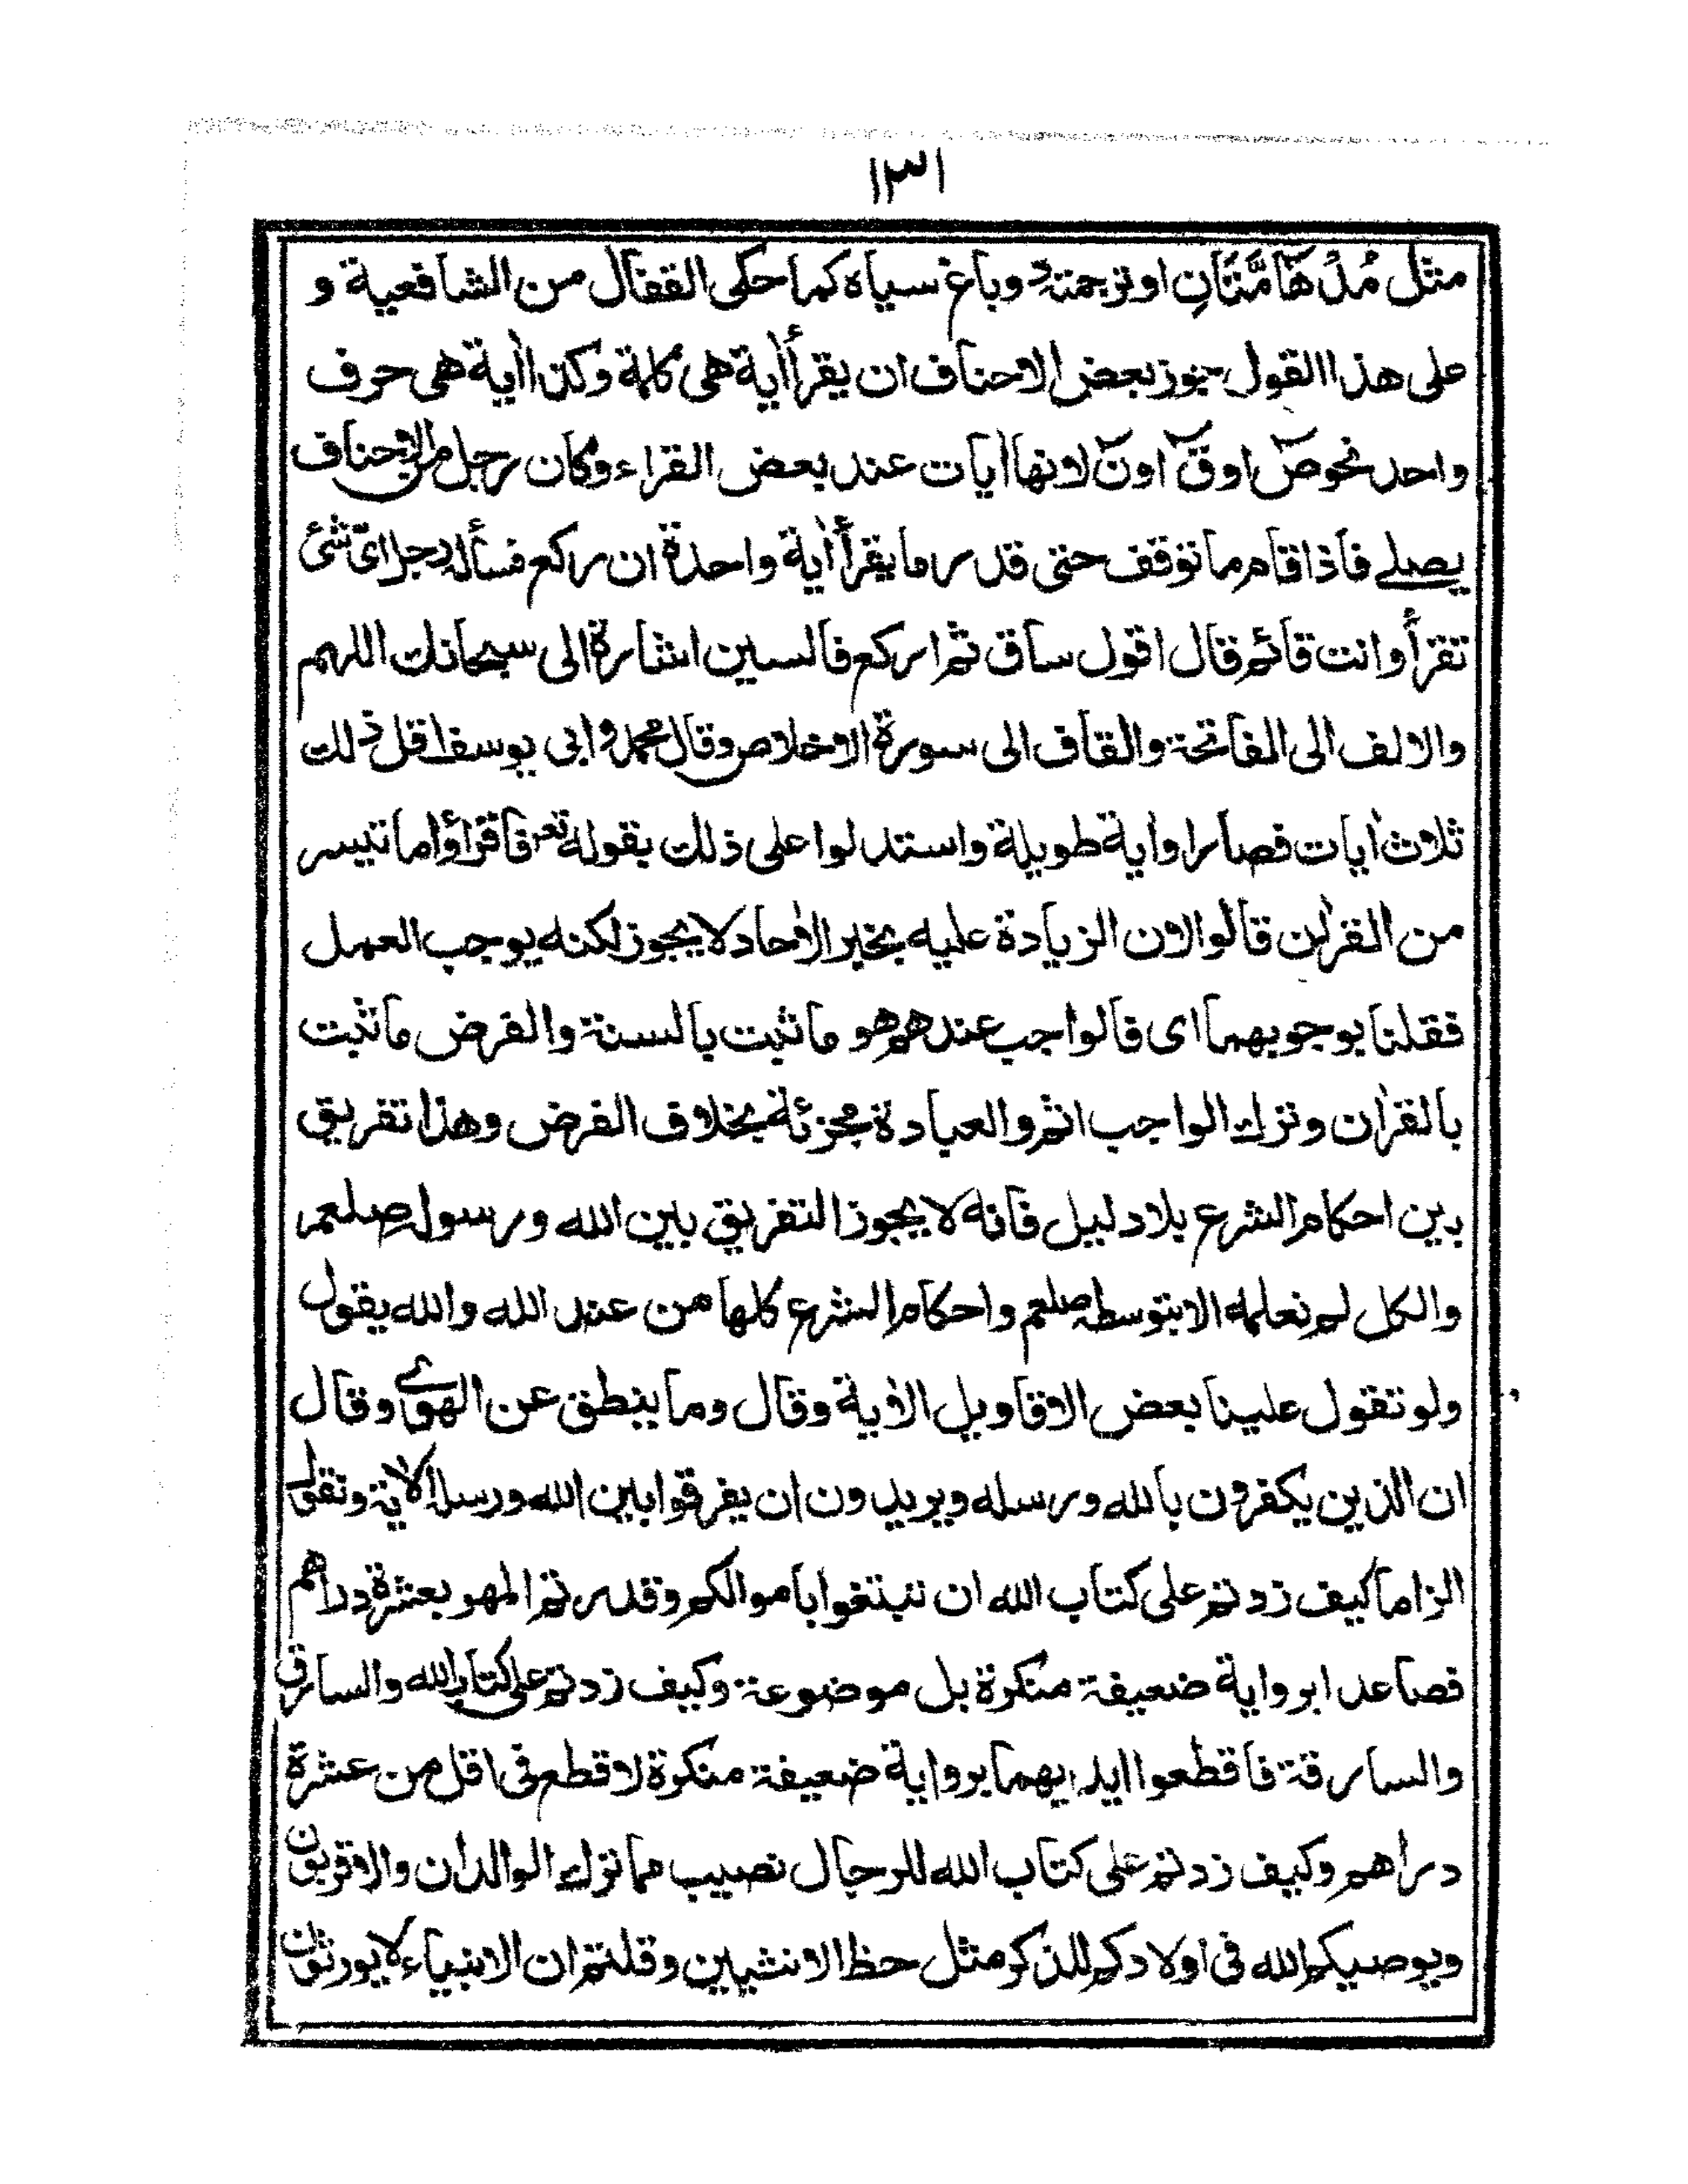 ١٣١
مثل مُدْهَآمَّتَانِ او ترجمته دوباغ سياه كما حكى القفال من الشافعية و
على هذا القول يجوز بعض الاحناف ان يقرأ اٰية هى كلمة وكذا اٰية هى حرف
واحد نحو صٓ او قٓ او نٓ لانها اٰيات عند بعض القراء وكان رجل من الاحناف
يصلے فاذا قام ما توقف حتى قدر ما يقرأ اٰية واحدة ان ركع فسأله رجل اىّ شئ
تقرأ وانت قائم قال اقول ساق ثم اركع فالسين اشارة الى سبحانك اللهم
والالف الى الفاتحة والقاف الى سورة الاخلاص وقال محمد وابى يوسف اقل ذلك
ثلاث اٰيات قصارا واٰية طويلة واستدلوا على ذلك بقوله تعـ فاقرؤا ما تيسر
من القراٰن قالوا لان الزيادة عليه بخبر الاٰحاد لا يجوز لكنه يوجب العمل
فقلنا بوجوبهما اى قالواجب عندهم هو ما ثبت بالسنة والفرض ما ثبت
بالقراٰن وترك الواجب اثم والعبادة مجزئة بخلاف الفرض وهذا تفريق
بين احكام الشرع بلا دليل فانه لا يجوز التفريق بين الله ورسوله صلعم
والكل لم نعلمه الا بتوسطه صلعم واحكام الشرع كلها من عند الله والله يقول
ولو تقول علينا بعض الاقاويل الاٰية وقال وما ينطق عن الهوىٰ وقال
ان الذين يكفرون بالله ورسله ويريدون ان يفرقوا بين الله ورسله الاٰية ونقول
الزاما كيف زدتم على كتاب الله ان تبتغوا باموالكم وقدرتم المهر بعشرة دراهم
فصاعدا برواية ضعيفة منكرة بل موضوعة وكيف زدتم على كتاب الله والسارق
والسارقة فاقطعوا ايديهما برواية ضعيفة منكرة لا قطع فى اقل من عشرة
دراهم وكيف زدتم على كتاب الله للرجال نصيب مما ترك الوالدان والاقربون
ويوصيكم الله فى اولادكم للذكر مثل حظ الانثيين وقلتم ان الانبياء لا يورثون